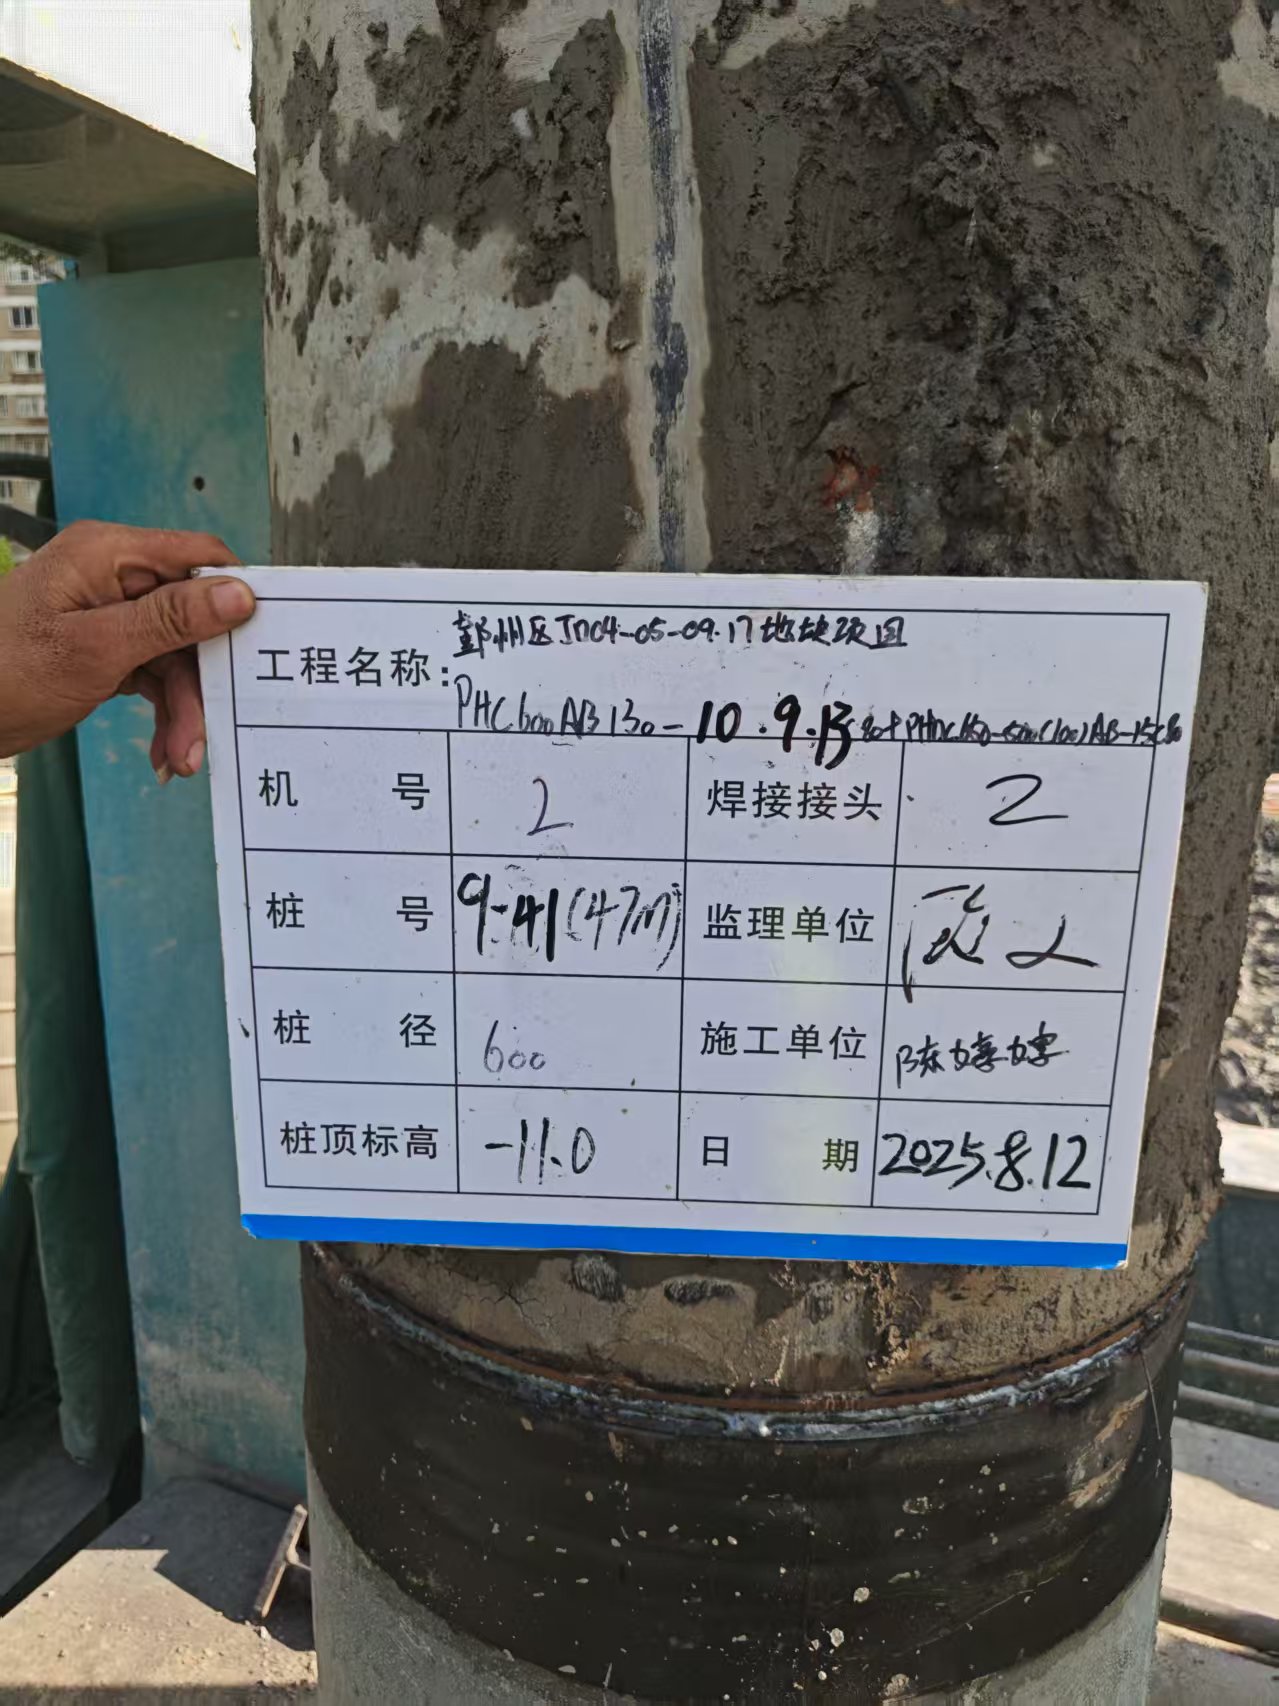 工程名称: 鄞州区JD04-05-09.17地块项目
PHC600AB130-10.9.13
机号 2 焊接接头 2
桩号 9-41(47m) 监理单位
桩径 600 施工单位 陈婷婷
桩顶标高 -11.0 日期 2025.8.12